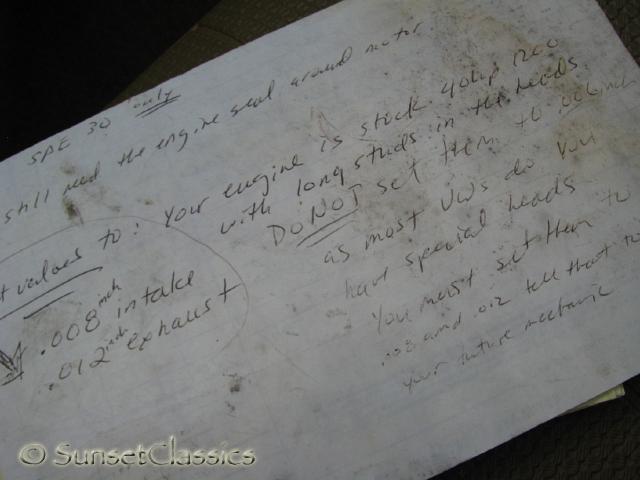 SAE 30 only
still need the engine seal around motor
t values to:
.008 inch intake
.012 inch exhaust
Your engine is stock 40hp 1200
with long studs in the heads
DO NOT set them to .006 inch
as most VWs do You
have special heads
You must set them to
.008 and .012 tell that to
your future mechanic
© SunsetClassics